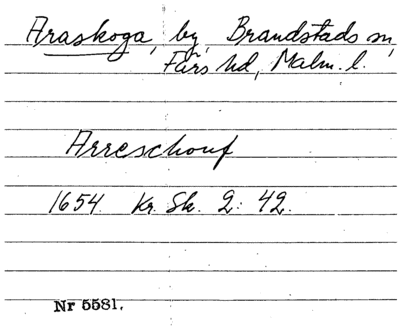 Araskoga, by, Brandstads sn,
Färs hd, Malm. l.
Arreschouf
1654 Kr. Sk. 2: 42.
Nr 5581.